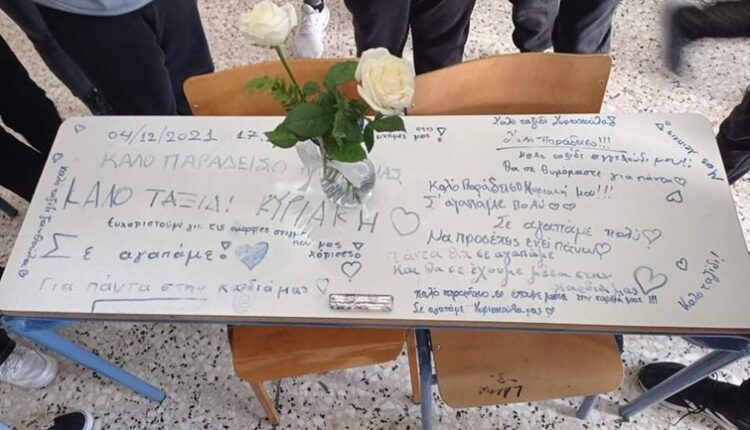 04/12/2021 17
ΚΑΛΟ ΠΑΡΑΔΕΙΣΟ
ΚΑΛΟ ΤΑΞΙΔΙ ΚΥΡΙΑΚΗ ♡
Ευχαριστούμε για τις όμορφες στιγμές
που μας χάρισες
Σε αγαπάμε!
Για πάντα στην καρδιά μας
Καλό ταξίδι
Στον Παράδεισο!!!
Καλό ταξίδι αγγελούδι μου!!
Θα σε θυμόμαστε για πάντα♡
Καλό Παράδεισο Κυριακή μου!!!
Σ' αγαπάμε Πολύ♡♡
Σε αγαπάμε πολύ♡
Να προσέχεις εκεί πάνω♡
Πάντα θα σε αγαπάμε
Και θα σε έχουμε μέσα στην
καρδιά μας
Καλό παράδεισο, σε έχουμε μέσα την καρδιά μας !!!
Σε αγαπάμε
Καλό ταξίδι!